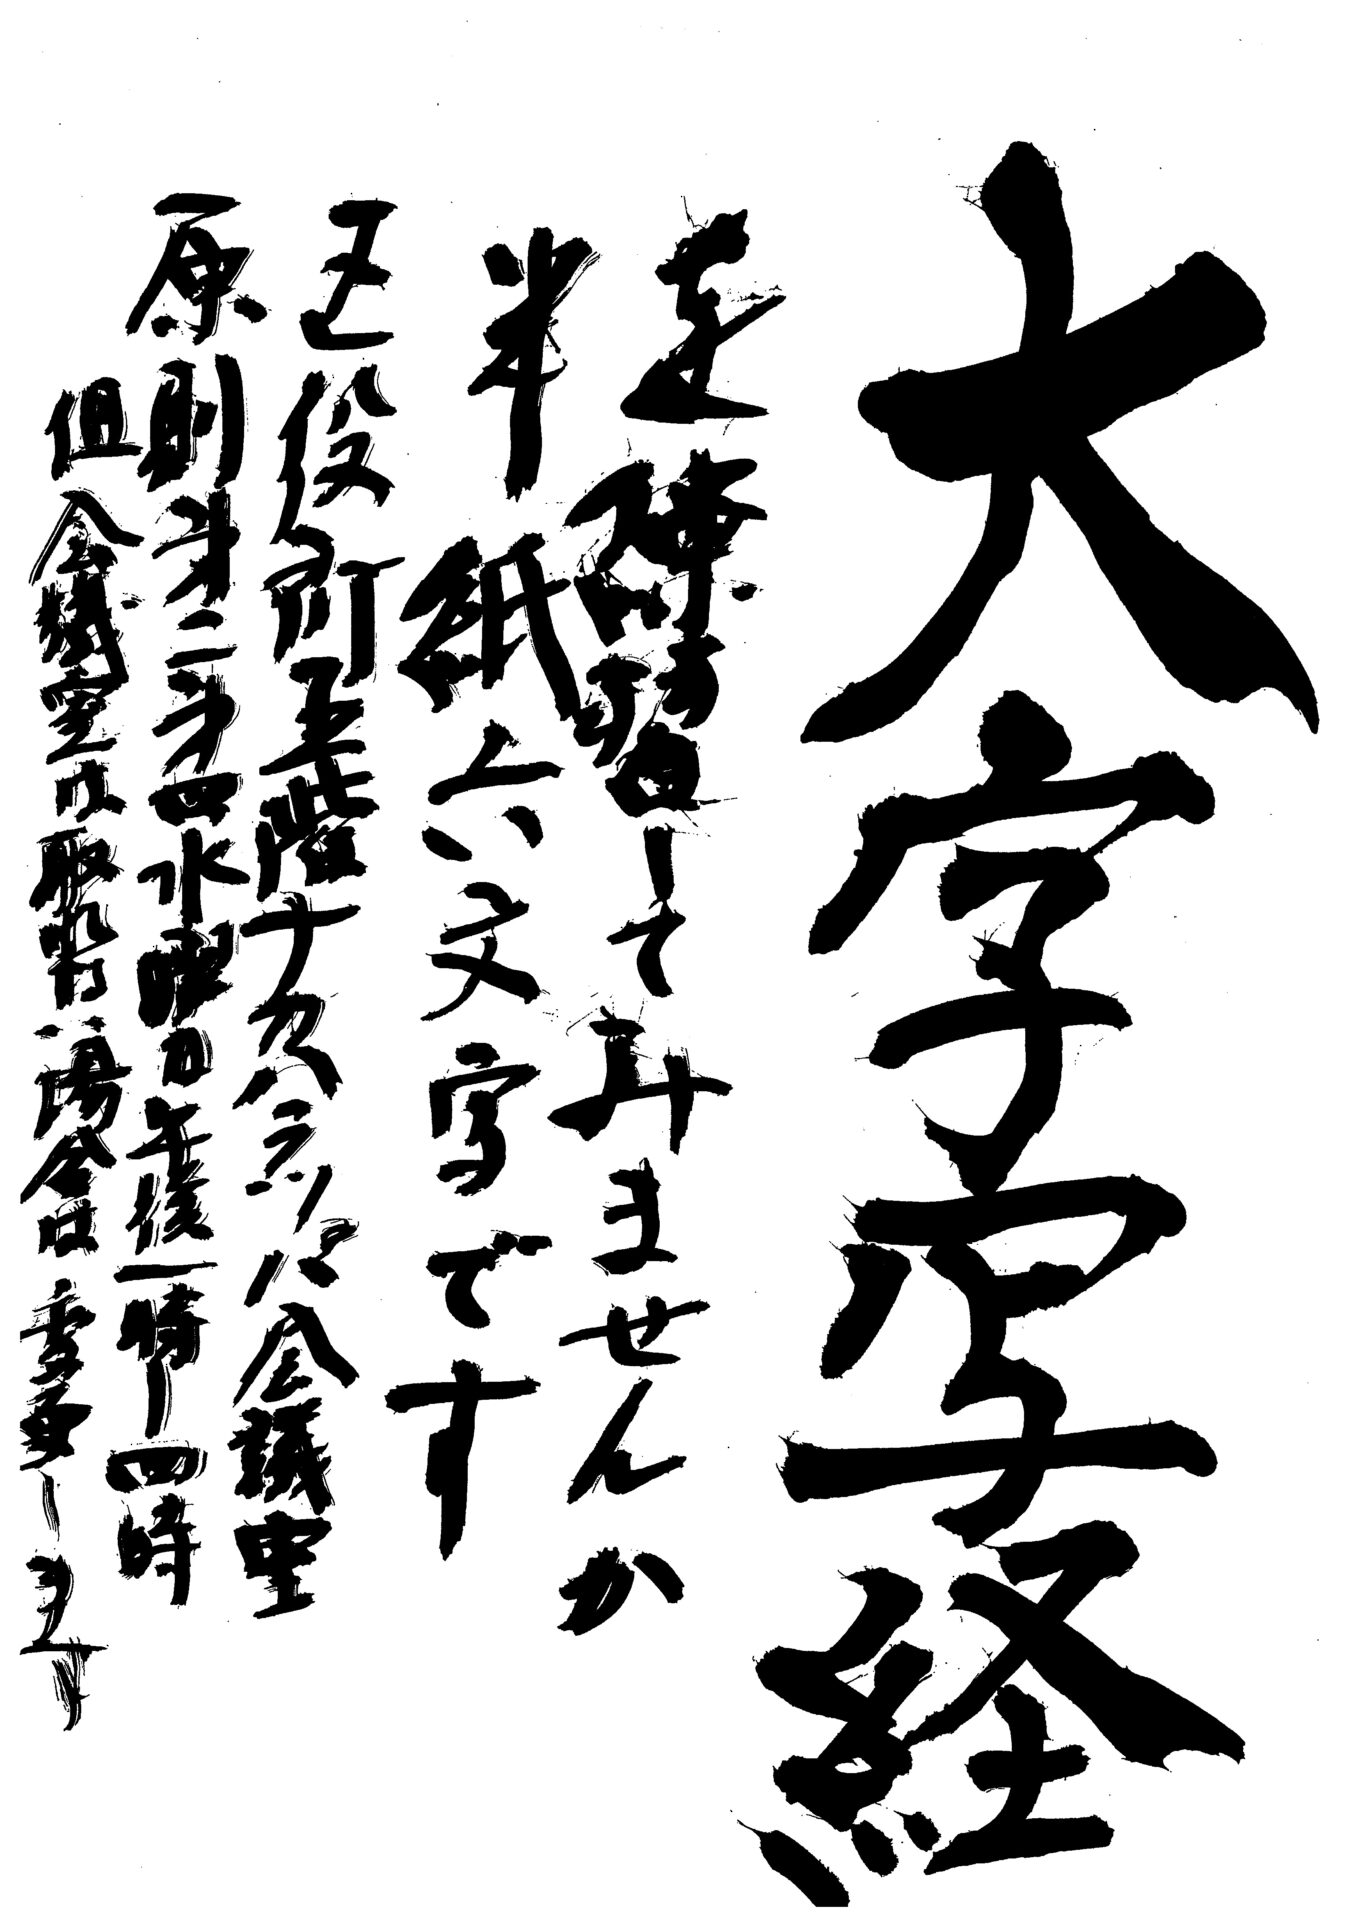 大字写経
を練習してみませんか
半紙六文字です
区役所五階十又は六階会議室
原則第二第四水曜日午後一時ー四時
但会議室は取れない場合は変更します